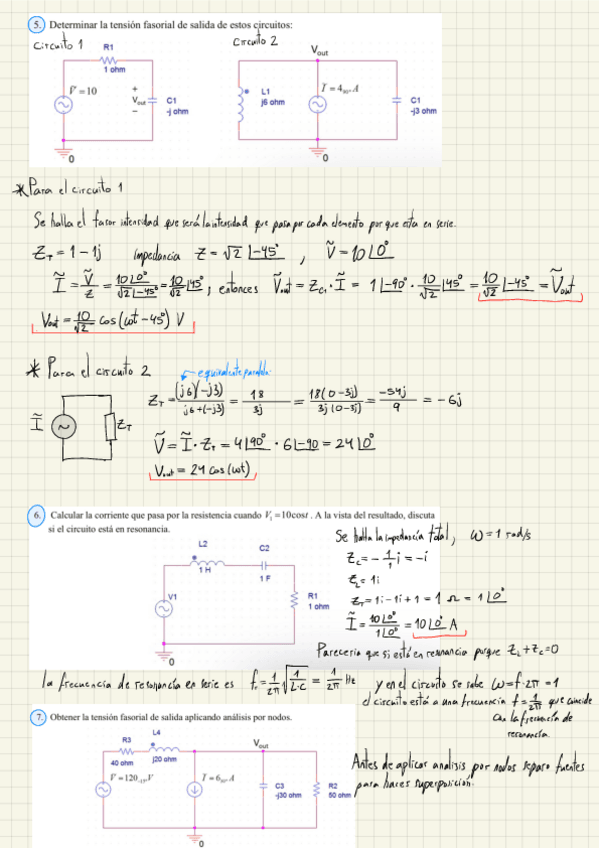 5. Determinar la tensión fasorial de salida de estos circuitos:
Circuito 1
R1
1 ohm
V = 10
+
Vout
-
C1
-j ohm
0
Circuito 2
Vout
L1
j6 ohm
I = 4_90° A
C1
-j3 ohm
0
* Para el circuito 1
Se halla el fasor intensidad que será la intensidad que pasa por cada elemento por que esta en serie.
Z_T = 1 - 1j impedancia Z = √2 ∟-45°, Ṽ = 10∟0°
Ĩ = Ṽ/Z = 10∟0°/√2∟-45° = 10/√2 ∟45°, entonces Ṽout = Z_C1 · Ĩ = 1∟-90° · 10/√2 ∟45° = 10/√2 ∟-45° = Ṽout
Vout = 10/√2 cos(ωt - 45°) V
* Para el circuito 2
equivalente paralelo
Ĩ
Z_T
Z_T = (j6)(-j3)/j6+(-j3) = 18/3j = 18(0-3j)/3j(0-3j) = -54j/9 = -6j
Ṽ = Ĩ · Z_T = 4∟90° · 6∟-90 = 24∟0°
Vout = 24 cos(ωt)
6. Calcular la corriente que pasa por la resistencia cuando V₁ = 10cos t. A la vista del resultado, discuta
si el circuito está en resonancia.
L2
1 H
C2
1 F
V1
R1
1 ohm
0
Se halla la impedancia total, ω = 1 rad/s
Z_C = -1/1 i = -i
Z_L = 1i
Z_T = 1i - 1i + 1 = 1 Ω = 1∟0°
Ĩ = 10∟0°/1∟0° = 10∟0° A
Pareceria que si está en resonancia porque Z_L + Z_C = 0
la frecuencia de resonancia en serie es f_r = 1/2π √1/L·C = 1/2π Hz
y en el circuito se sabe ω = f·2π = 1
el circuito está a una frecuencia f = 1/2π que coincide
con la frecuencia de
resonancia.
7. Obtener la tensión fasorial de salida aplicando análisis por nodos.
R3
40 ohm
L4
j20 ohm
Vout
V = 120_-15° V
I = 6_30° A
C3
-j30 ohm
R2
50 ohm
0
Antes de aplicar analisis por nodos separo fuentes
para hacer superposición.